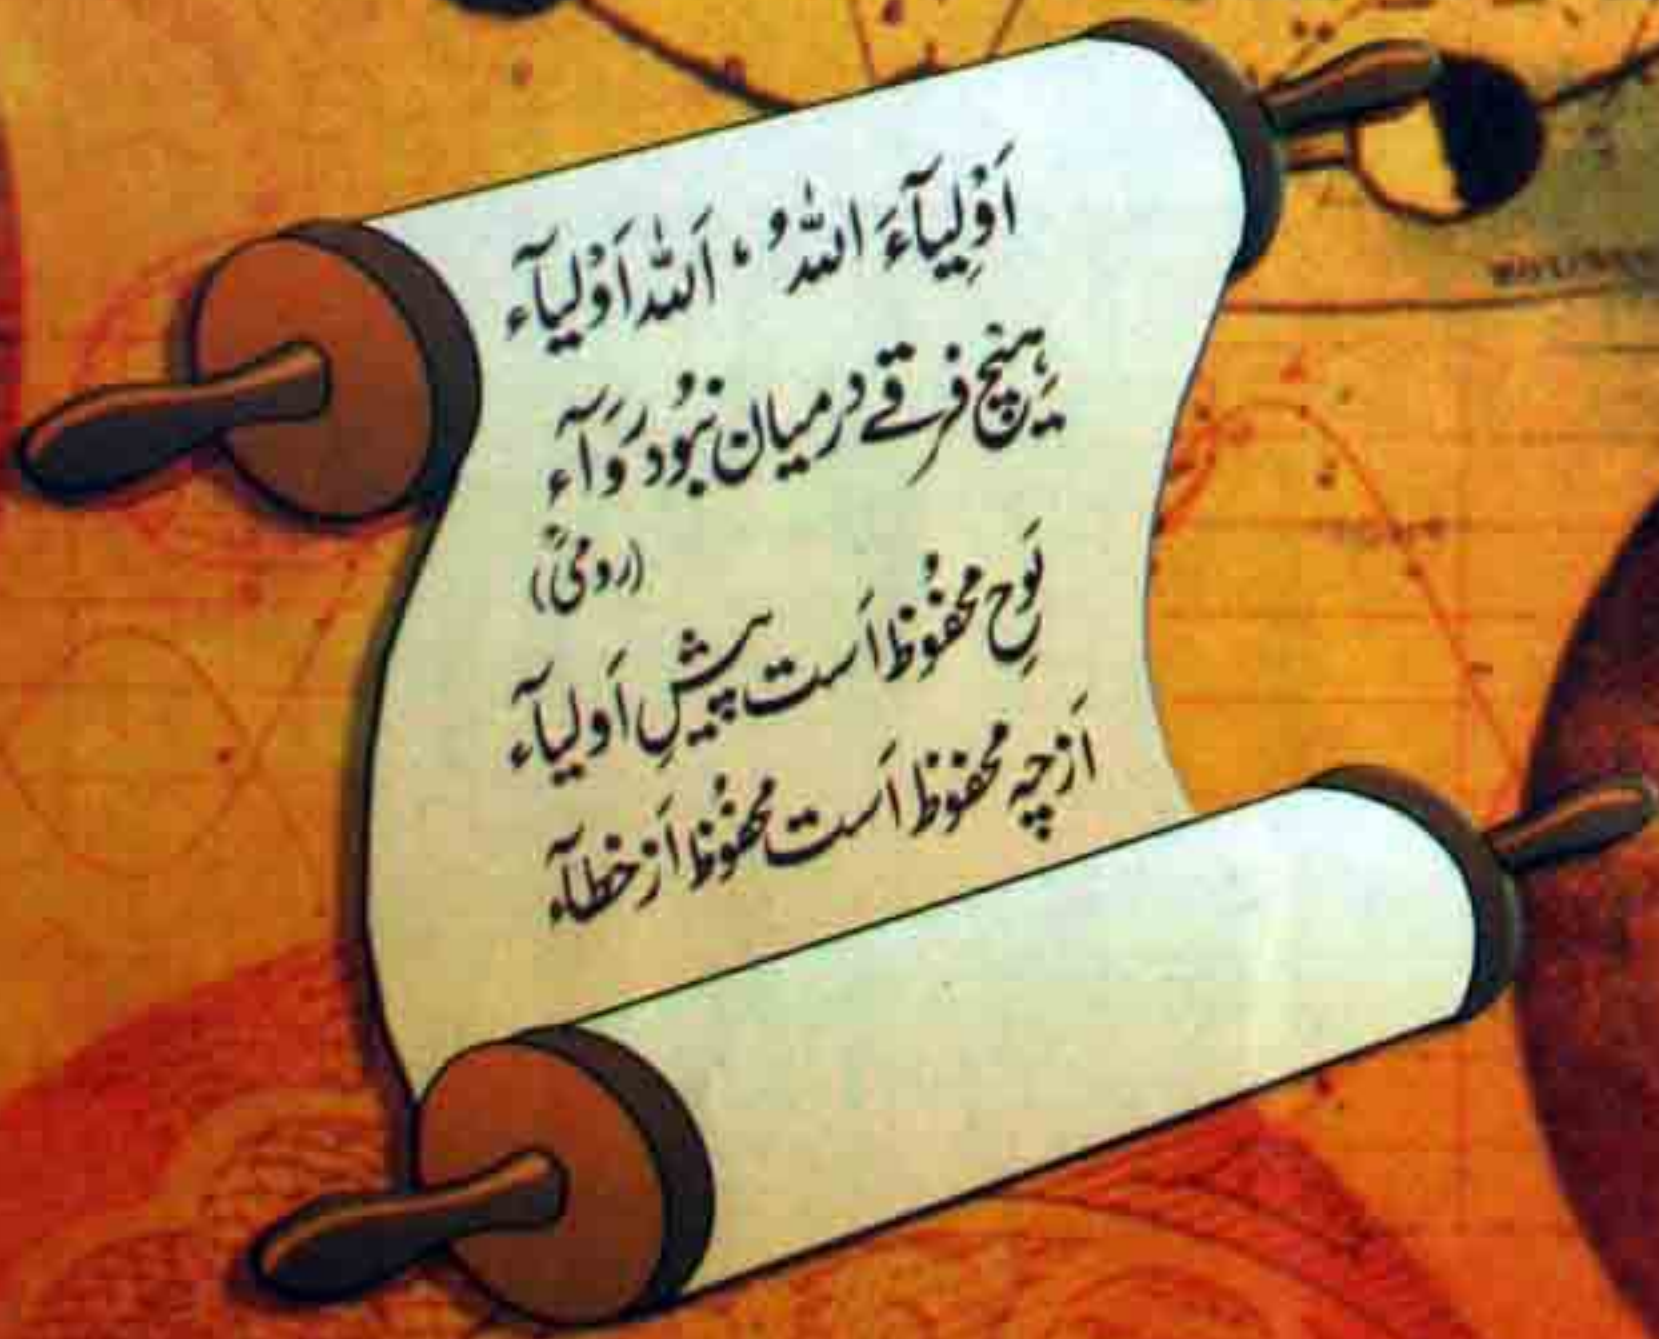 اَوْلِیَآءَ اللّٰہُ ، اَللّٰہ اَوْلیآء
ہَیْچ فرقے درمیان نَبُود رَوَآء
(رومیؒ)
لَوحِ محفُوظ اَست پیشِ اَولیآء
اَز چِہ محفوظ اَست محفُوظ اَز خطآء